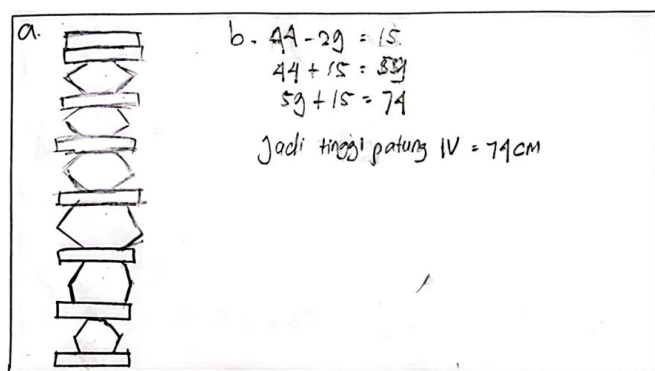 a.
b. 44 - 29 = 15
44 + 15 = 59
59 + 15 = 74
Jadi tinggi patung IV = 74 cm